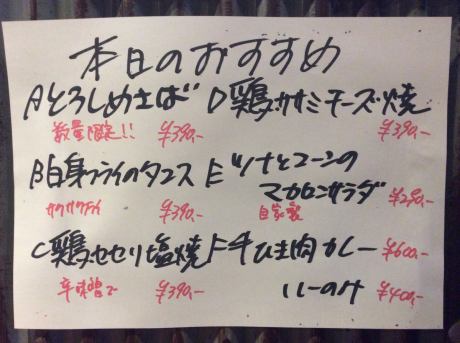 本日のおすすめ
Aとろしめさば
数量限定!! ¥390.-
D鶏ササミチーズ焼
¥390.-
B白身フライのタコス
サクサクフライ ¥390.-
Eツナとコーンの
マカロニサラダ
自家製 ¥290.-
C鶏セセリ塩焼
辛味噌で ¥390.-
F牛ひき肉カレー ¥600.-
ルーのみ ¥400.-